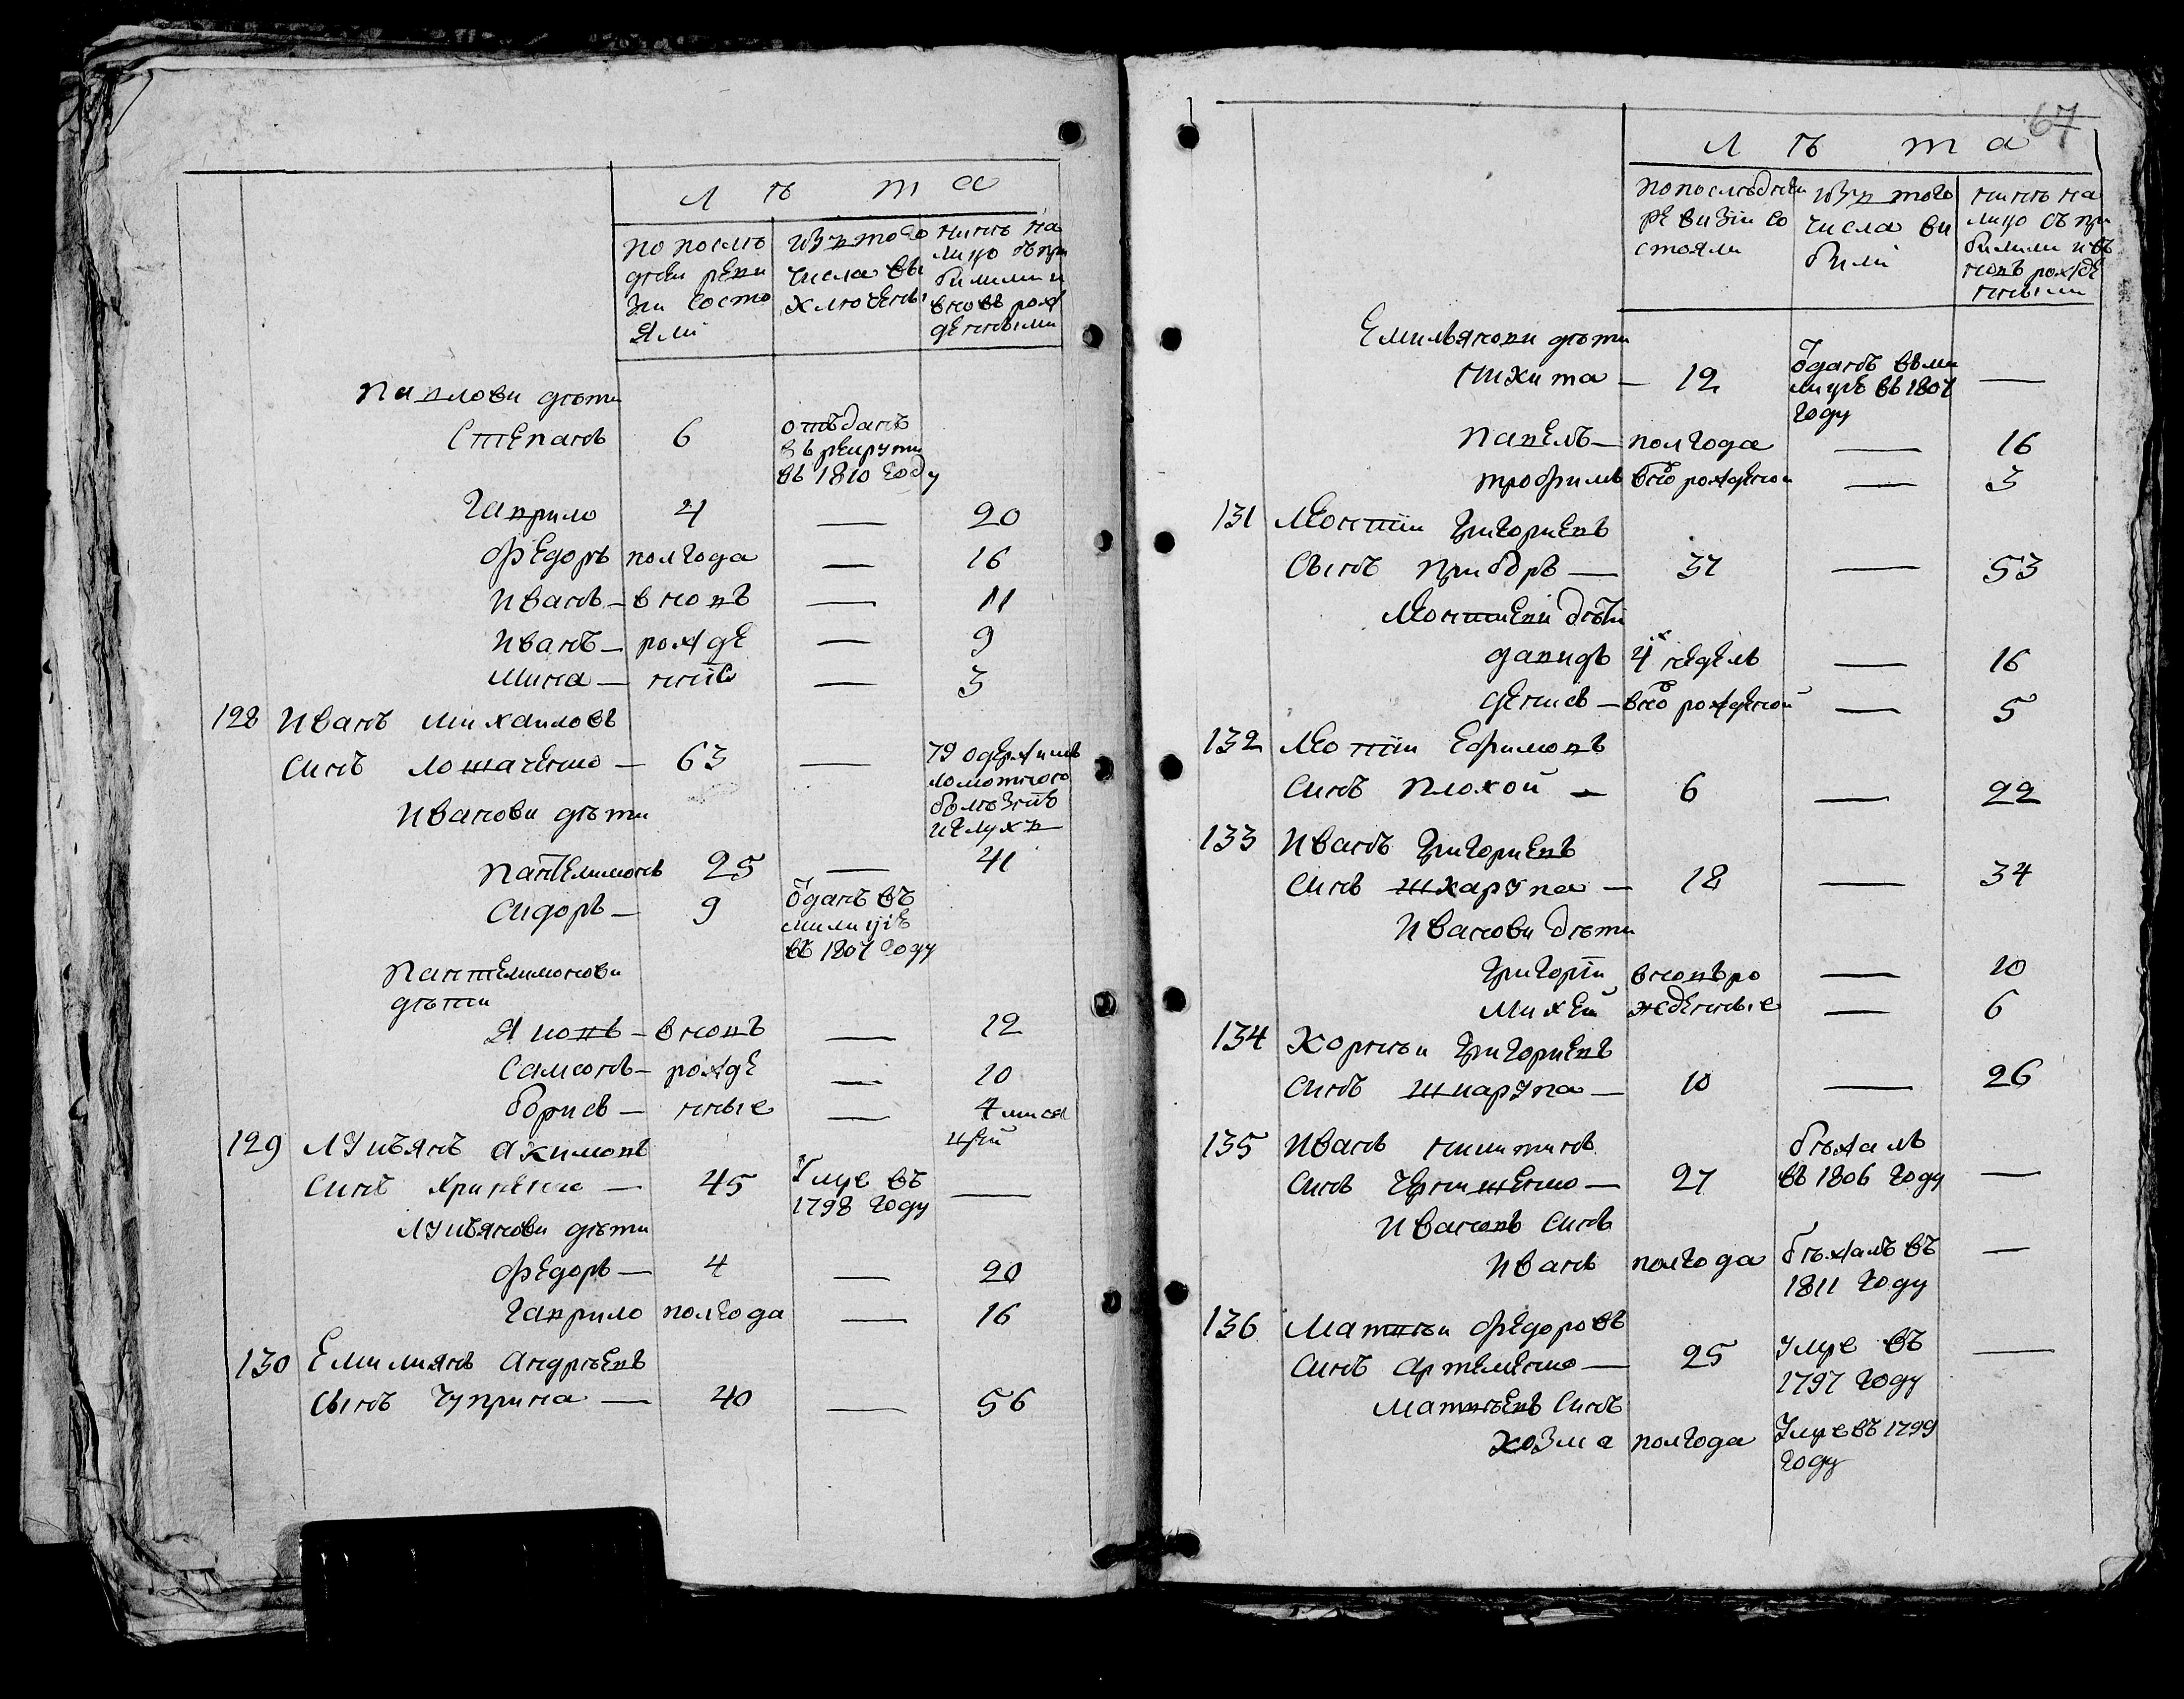 Л ѣ т а
по послѣ
дней реви
зіи состо
яли
изъ того
числа вы
ключены
нынѣ на
лицо съ при
былыми и
вновь рож
денными
Павлови дѣти
Степанъ 6 отъданъ
въ рекруты
въ 1810 году
Гаврило 4 — 20
Федоръ полгода — 16
Иванъ — вновъ — 11
Иванъ — рожде — 9
Мина — нніе — 3
128 Иванъ Михаиловъ
Синъ Лошаченко — 63 — 79 одержимъ
ломотного
болѣзнію
и глухъ
Иванови дѣти
Пантелимонъ 25 — 41
Сидоръ — 9 оданъ въ
милиціе
въ 1807 году
Пантелимонови
дѣти
Яковъ — вновъ — 12
Самсонъ — рожде — 10
Борисъ — нные — 4 мися
цей
129 Лукъянъ Акимовъ
Синъ — 45 Умре въ
1798 году —
Лукъянови дѣти
Федоръ — 4 — 20
Гаврило полгода — 16
130 Емилиянъ Андрѣевъ
Сынъ Чуприна — 40 — 56
67
Л ѣ т а
по послѣдней
ревизіи со
стояли
изъ того
числа ви
били
нинѣ на
лицо съ при
билими и въ
новъ рожде
нными
Емильянови дѣти
Никита — 12 оданъ въ ми
лицѣ въ 1807
году —
Павелъ — полгода — 16
Трофимъ вно рожденой — 3
131 Леонтіи Григориевъ
Сынъ Прибора — 37 — 53
Леонтиеви дѣти
Давидъ 4х недель — 16
Денисъ — вно рожденой — 5
132 Леонтіи Ефимовъ
Синъ Плохой — 6 — 22
133 Иванъ Григориевъ
Синъ Шкарупа — 18 — 34
Иванови дѣти
Григорій вновъ ро — 10
Михей жденные — 6
134 Корнѣи Григориевъ
Синъ Шкарупа — 10 — 26
135 Иванъ Никитинъ
Синъ Чернишенко — 27 бѣжалъ
въ 1806 году —
Ивановъ Синъ
Иванъ полгода бѣжалъ въ
1811 году —
136 Матвѣи Федоровъ
Синъ Артеменко — 25 Умре въ
1797 году —
Матвѣевъ Синъ
Козма полгода Умре въ 1799
году